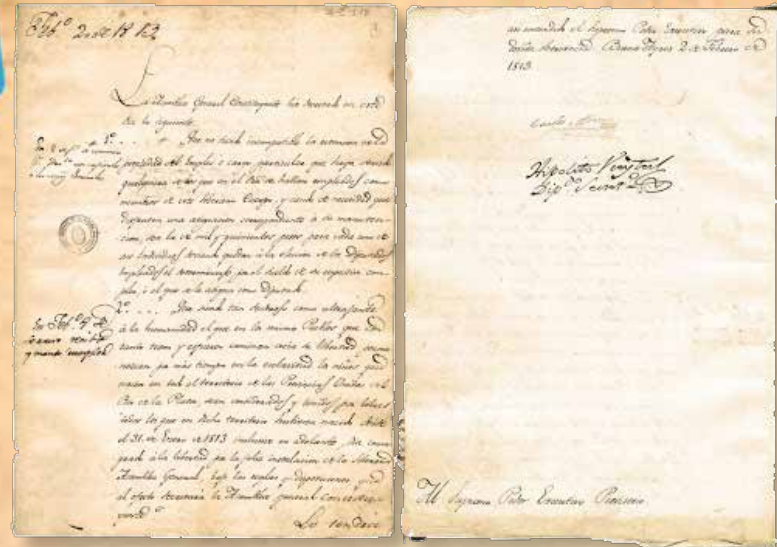 Feb.º 2 de 1813
La Asamblea General Constituyente ha decretado en este
dia lo siguiente.
1.º . . . Que no siendo incompatible la retencion de la
propiedad del empleo o cargo particular que haya
qualquiera de los que en el dia se hallan empleados como
miembros de este Soberano Cuerpo, y siendo de necesidad que
disfruten una asignacion correspondiente á su manuten-
cion, sea la de mil y quinientos pesos para cada uno de
sus individuos quedando á la eleccion de los Diputados
empleados el sueldo de su respectivo em-
pleo, ó el que se le asigna como diputado.
2.º . . . Que siendo tan como ultrajante
á la humanidad el que en los mismos Pueblos que con
tanto teson y esfuerzo caminan ácia la libertad, perma-
nezcan por mas tiempo en la esclavitud los niños que
nacen en todo el territorio de las Provincias Unidas del
Rio de la Plata, sean considerados y tenidos por libres
todos los que en dicho territorio hubiesen nacido desde
el 31 de Enero de 1813 inclusive en adelante, dia consa-
grado á la libertad por la feliz instalacion de la
Asamblea General, bajo las reglas y disposiciones que
al efecto decretará la Asamblea general constitu-
yente.
Lo tendrá
En Feb.º 9
y mandó
asi entendido el Supremo Poder Executivo para su
debida observancia. Buenos Ayres 2 de Febrero de
1813.
Hipolito Vieytes
Dip.º Secret.º
Al Supremo Poder Executivo